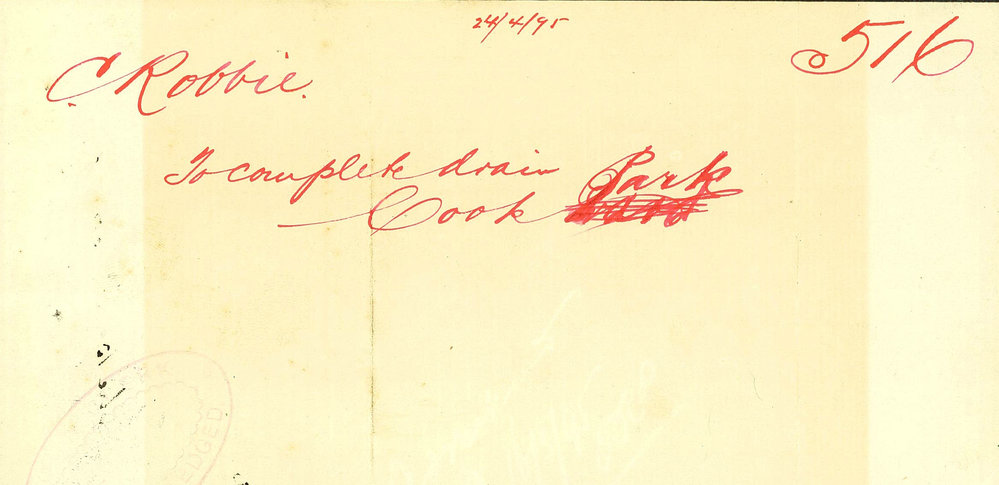 24/4/95
516
C Robbie.
To complete drain
Cook Park
EDGED